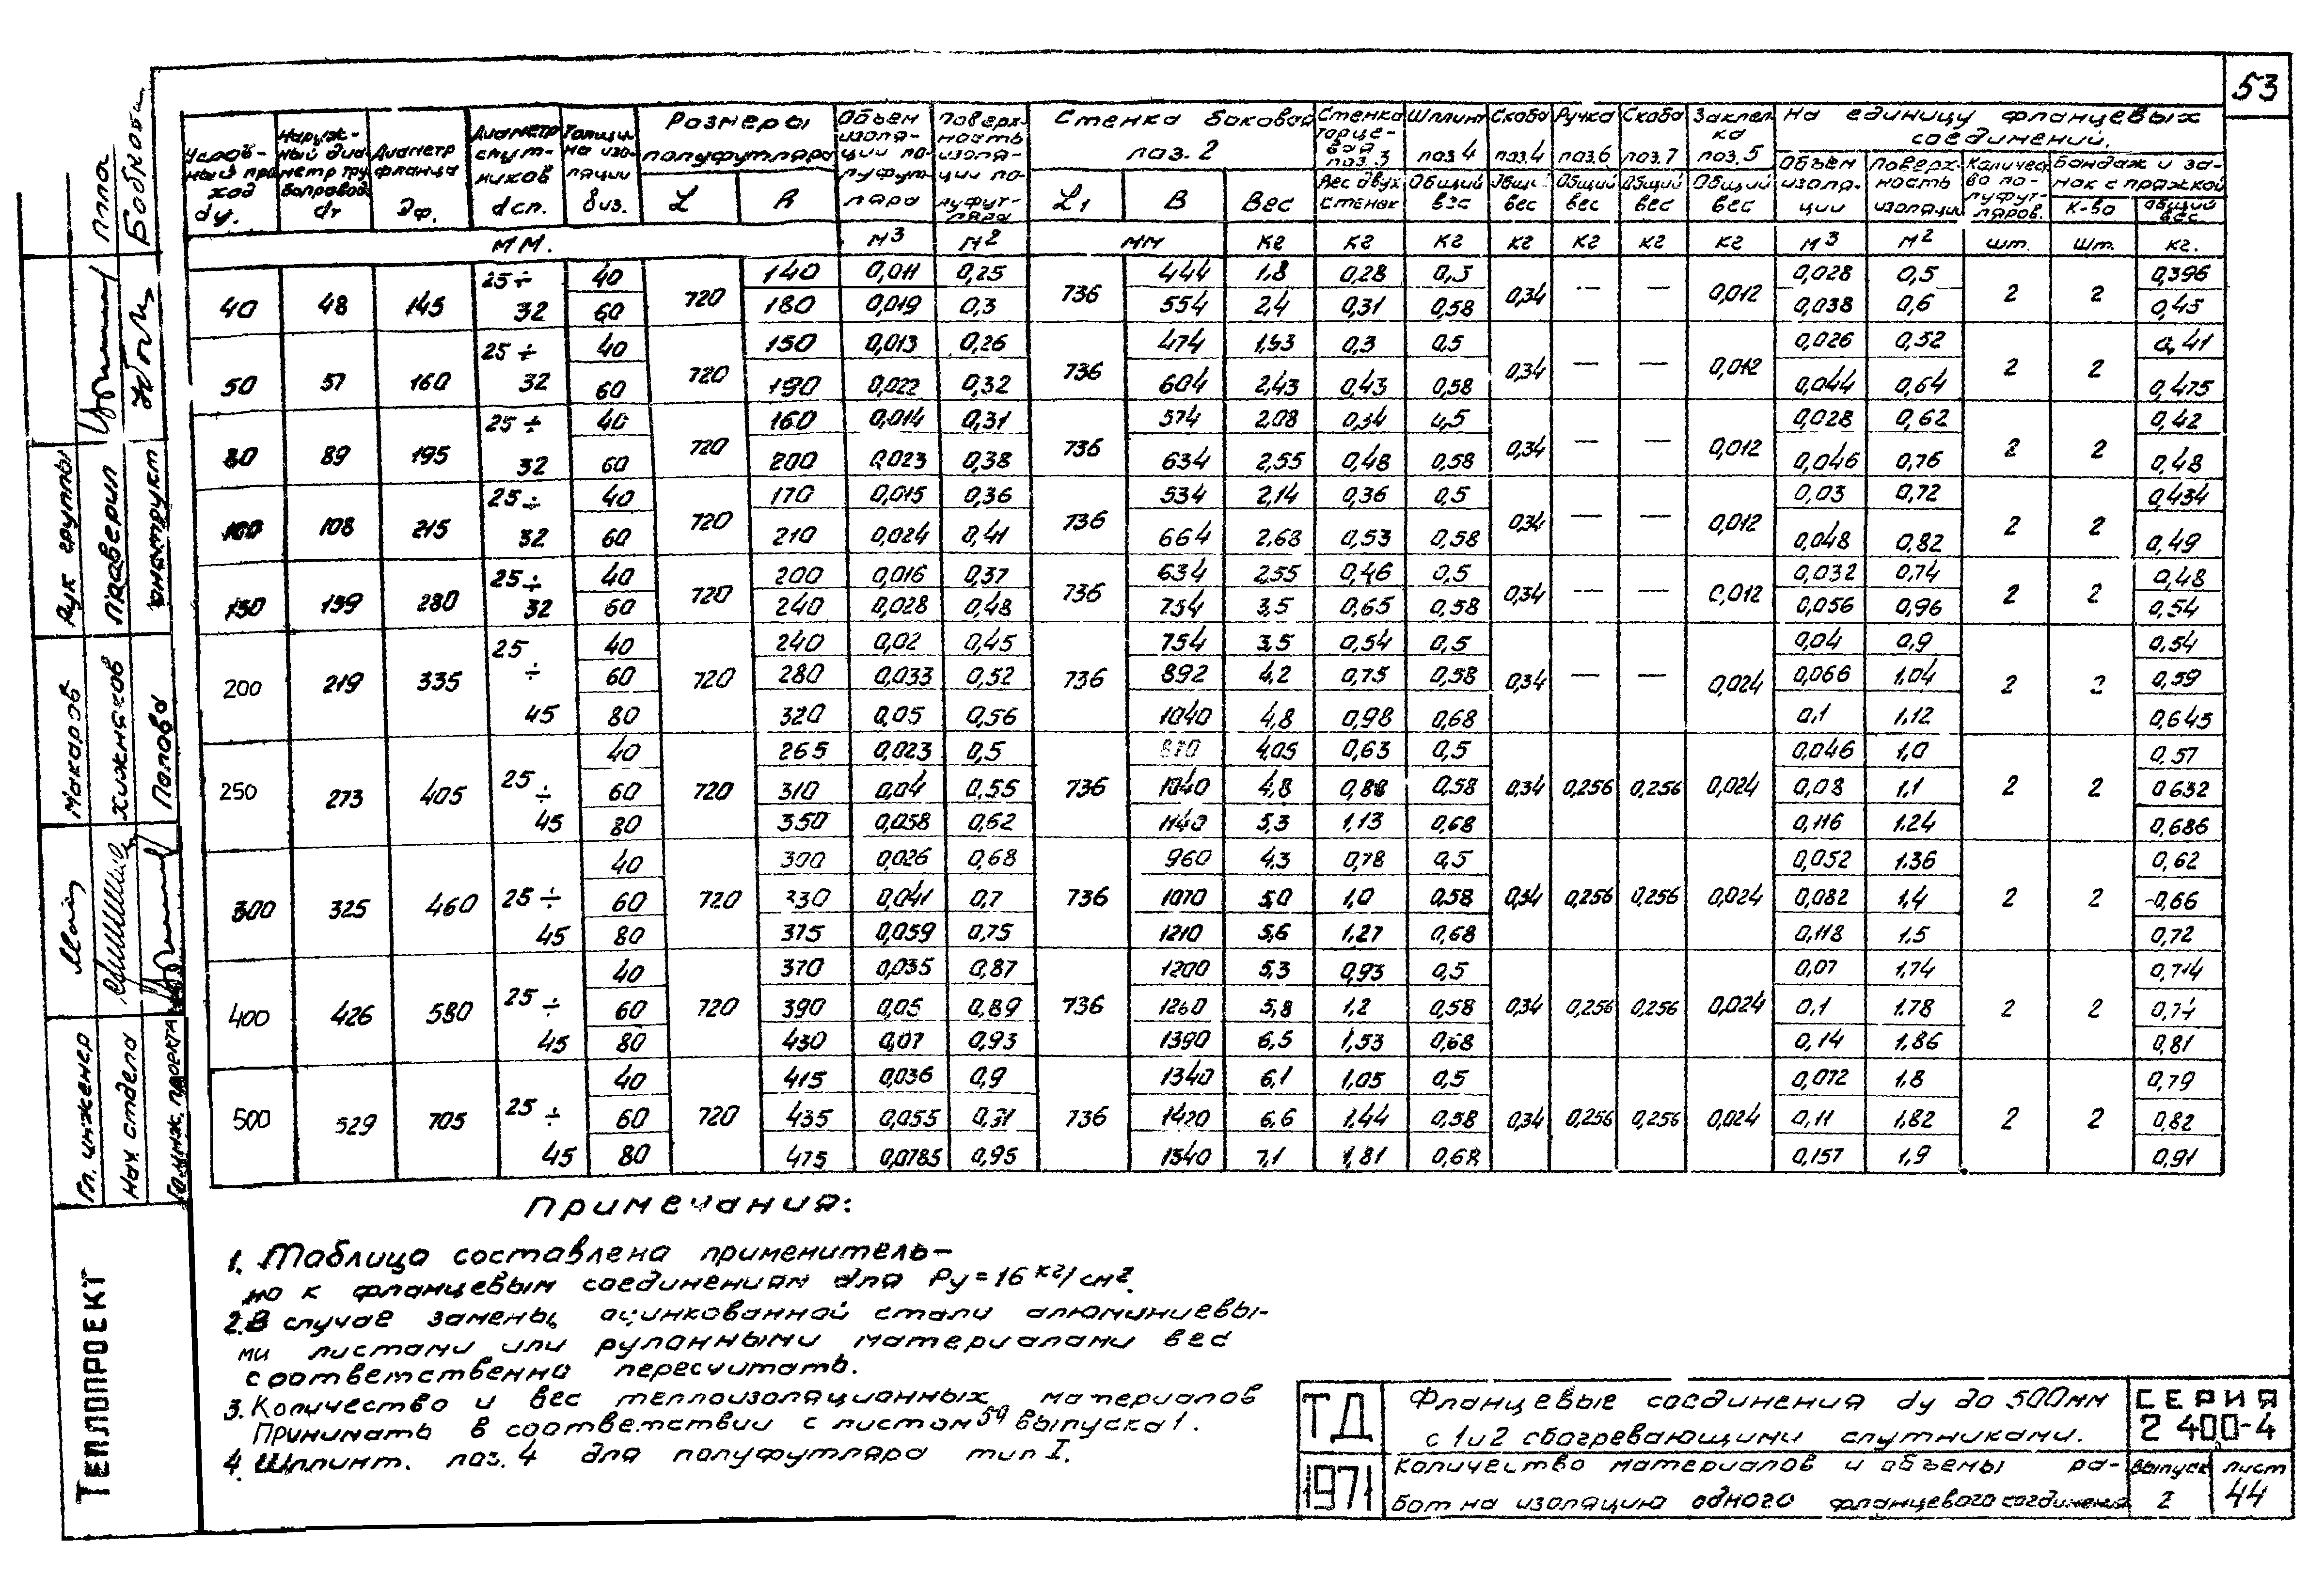 53
Условный проход dу.
Наружный диаметр трубопровода dт
Диаметр фланца Dф.
Диаметр спутников dсп.
Толщина изоляции δиз.
Размеры полуфутляра
L
R
Объем изоляции полуфутляра
Поверхность изоляции полуфутляра
Стенка боковая поз. 2
L1
В
Вес
Стенка торцевая поз. 3 Вес двух стенок
Шплинт поз 4 Общий вес
Скоба поз. 4 Общий вес
Ручка поз. 6 Общий вес
Скоба поз. 7 Общий вес
Заклепка поз. 5 Общий вес
На единицу фланцевых соединений.
Объем изоляции
Поверхность изоляции
Количество полуфутляров.
Бандаж и замок с пряжкой
К-во
Общий вес
мм. м3 м2 мм кг кг кг кг кг кг кг м3 м2 шт. шт. кг.
40 48 145 25÷32 720 736 0,34 — — 0,012 2 2
40 140 0,011 0,25 444 1,8 0,28 0,5 0,028 0,5 0,396
60 180 0,019 0,3 554 2,4 0,31 0,58 0,038 0,6 0,45
50 57 160 25÷32 720 736 0,34 — — 0,012 2 2
40 150 0,013 0,26 474 1,93 0,3 0,5 0,026 0,52 0,41
60 190 0,022 0,32 604 2,43 0,43 0,58 0,044 0,64 0,475
80 89 195 25÷32 720 736 0,34 — — 0,012 2 2
40 160 0,014 0,31 574 2,08 0,34 0,5 0,028 0,62 0,42
60 200 0,023 0,38 634 2,55 0,48 0,58 0,046 0,76 0,48
100 108 215 25÷32 720 736 0,34 — — 0,012 2 2
40 170 0,015 0,36 534 2,14 0,36 0,5 0,03 0,72 0,434
60 210 0,024 0,41 664 2,68 0,53 0,58 0,048 0,82 0,49
150 159 280 25÷32 720 736 0,34 — — 0,012 2 2
40 200 0,016 0,37 634 2,55 0,46 0,5 0,032 0,74 0,48
60 240 0,028 0,48 754 3,5 0,65 0,58 0,056 0,96 0,54
200 219 335 25÷45 720 736 0,34 — — 0,024 2 2
40 240 0,02 0,45 754 3,5 0,54 0,5 0,04 0,9 0,54
60 280 0,033 0,52 892 4,2 0,75 0,58 0,066 1,04 0,59
80 320 0,05 0,56 1040 4,8 0,98 0,68 0,1 1,12 0,645
250 273 405 25÷45 720 736 0,34 0,256 0,256 0,024 2 2
40 265 0,023 0,5 4,05 0,63 0,5 0,046 1,0 0,57
60 310 0,04 0,55 1040 4,8 0,88 0,58 0,08 1,1 0632
80 350 0,058 0,62 1140 5,3 1,13 0,68 0,116 1.24 0,686
300 325 460 25÷45 720 736 0,34 0,256 0,256 0,024 2 2
40 300 0,026 0,68 960 4,3 0,78 0,5 0,052 1.36 0,62
60 330 0,041 0,7 1070 5,0 1,0 0,58 0,082 1,4 0,66
80 375 0,059 0,75 1210 5,6 1,27 0,68 0,118 1,5 0,72
400 426 580 25÷45 720 736 0,34 0,256 0,256 0,024 2 2
40 370 0,035 0,87 1200 5,3 0,93 0,5 0,07 1,74 0,714
60 390 0,05 0,89 1260 5,8 1,2 0,58 0,1 1.78 0,74
80 430 0,07 0,93 1390 6,5 1,53 0,68 0,14 1.86 0,81
500 529 705 25÷45 720 736 0,34 0,256 0,256 0,024 2 2
40 415 0,036 0,9 1340 6,1 1,05 0,5 0,072 1,8 0,79
60 435 0,055 0,91 1420 6,6 1,44 0,58 0,11 1,82 0,82
80 475 0,0785 0,95 1540 7,1 1,81 0,68 0,157 1,9 0,91
Примечания:
1. Таблица составлена применитель-
но к фланцевым соединениям для Ру=16 кг/см2.
2. В случае замены оцинкованной стали алюминиевы-
ми листами или рулонными материалами вес
соответственно пересчитать.
3. Количество и вес теплоизоляционных материалов
Принимать в соответствии с листом 59 выпуска 1.
4 Шплинт. поз. 4 для полуфутляра тип I.
ТД
1971
Фланцевые соединения dу до 500мм
с 1 и 2 обогревающими спутниками.
Количество материалов и объемы ра-
бот на изоляцию одного фланцевого соединения
СЕРИЯ
2 400-4
Выпуск 2
лист 44
ТЕПЛОПРОЕКТ
Гл. инженер
Нач. отдела
Гл. инж. проекта
Макаров
Хижняков
Попова
Рук группы
Проверил
Конструкт
Бобкова